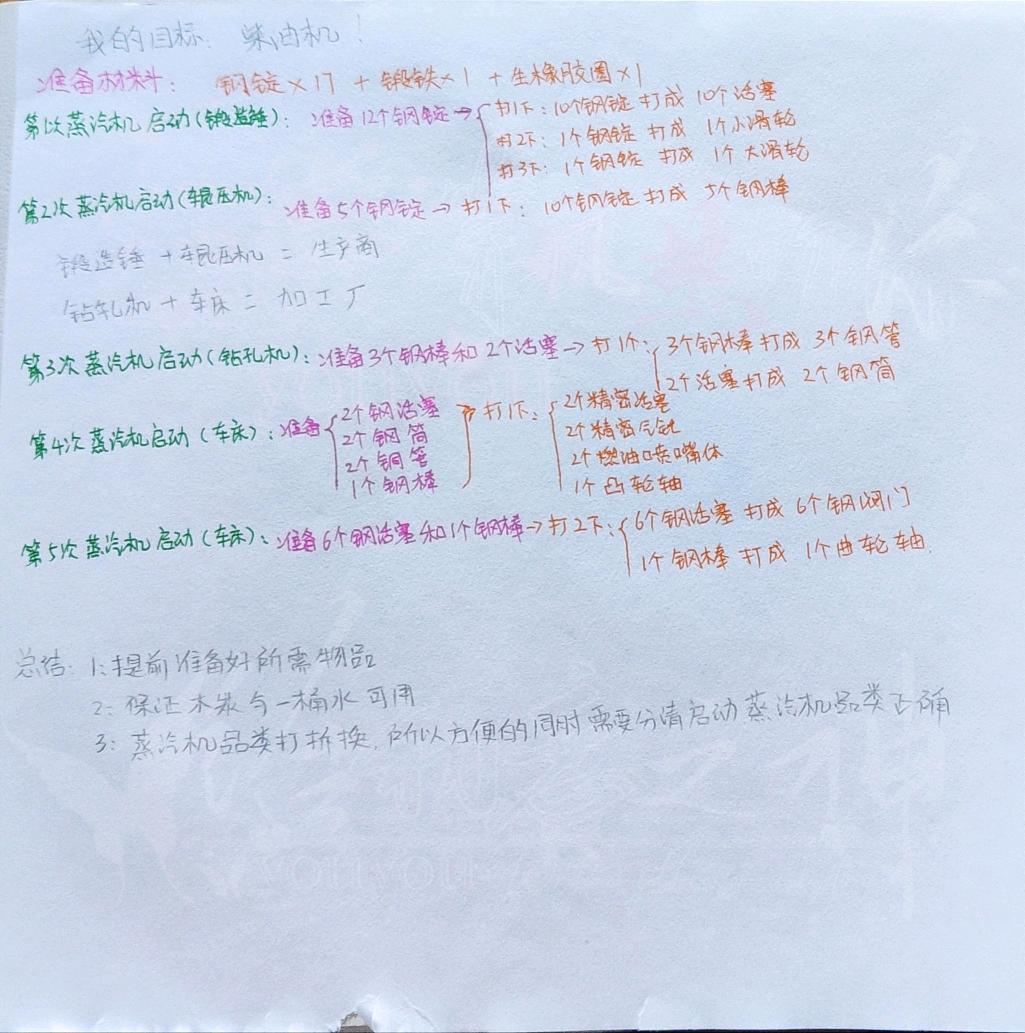 我的目标：柴油机！
准备材料：钢锭×17 + 锻铁×1 + 生橡胶圈×1
第1次蒸汽机启动(锻造锤)：准备12个钢锭→ 打1下：10个钢锭 打成 10个活塞
打2下：1个钢锭 打成 1个小滑轮
打3下：1个钢锭 打成 1个大滑轮
第2次蒸汽机启动(辊压机)：准备5个钢锭→打1下：10个钢锭 打成 5个钢棒
锻造锤 + 辊压机 = 生产商
钻孔机 + 车床 = 加工厂
第3次蒸汽机启动(钻孔机)：准备3个钢棒和2个活塞→打1个：3个钢棒 打成 3个钢管
2个活塞打成 2个钢筒
第4次蒸汽机启动(车床)：准备 2个钢活塞 打1下：2个精密活塞
2个钢筒 2个精密
2个钢管 2个燃油喷嘴体
1个钢棒 1个凸轮轴
第5次蒸汽机启动(车床)：准备6个钢活塞和1个钢棒→打2下：6个钢活塞 打成 6个钢阀门
1个钢棒 打成 1个曲轮轴.
总结：1：提前准备好所需物品
2：保证木炭与一桶水可用
3：蒸汽机品类打折换，所以方便的同时需要分清启动蒸汽机品类正确